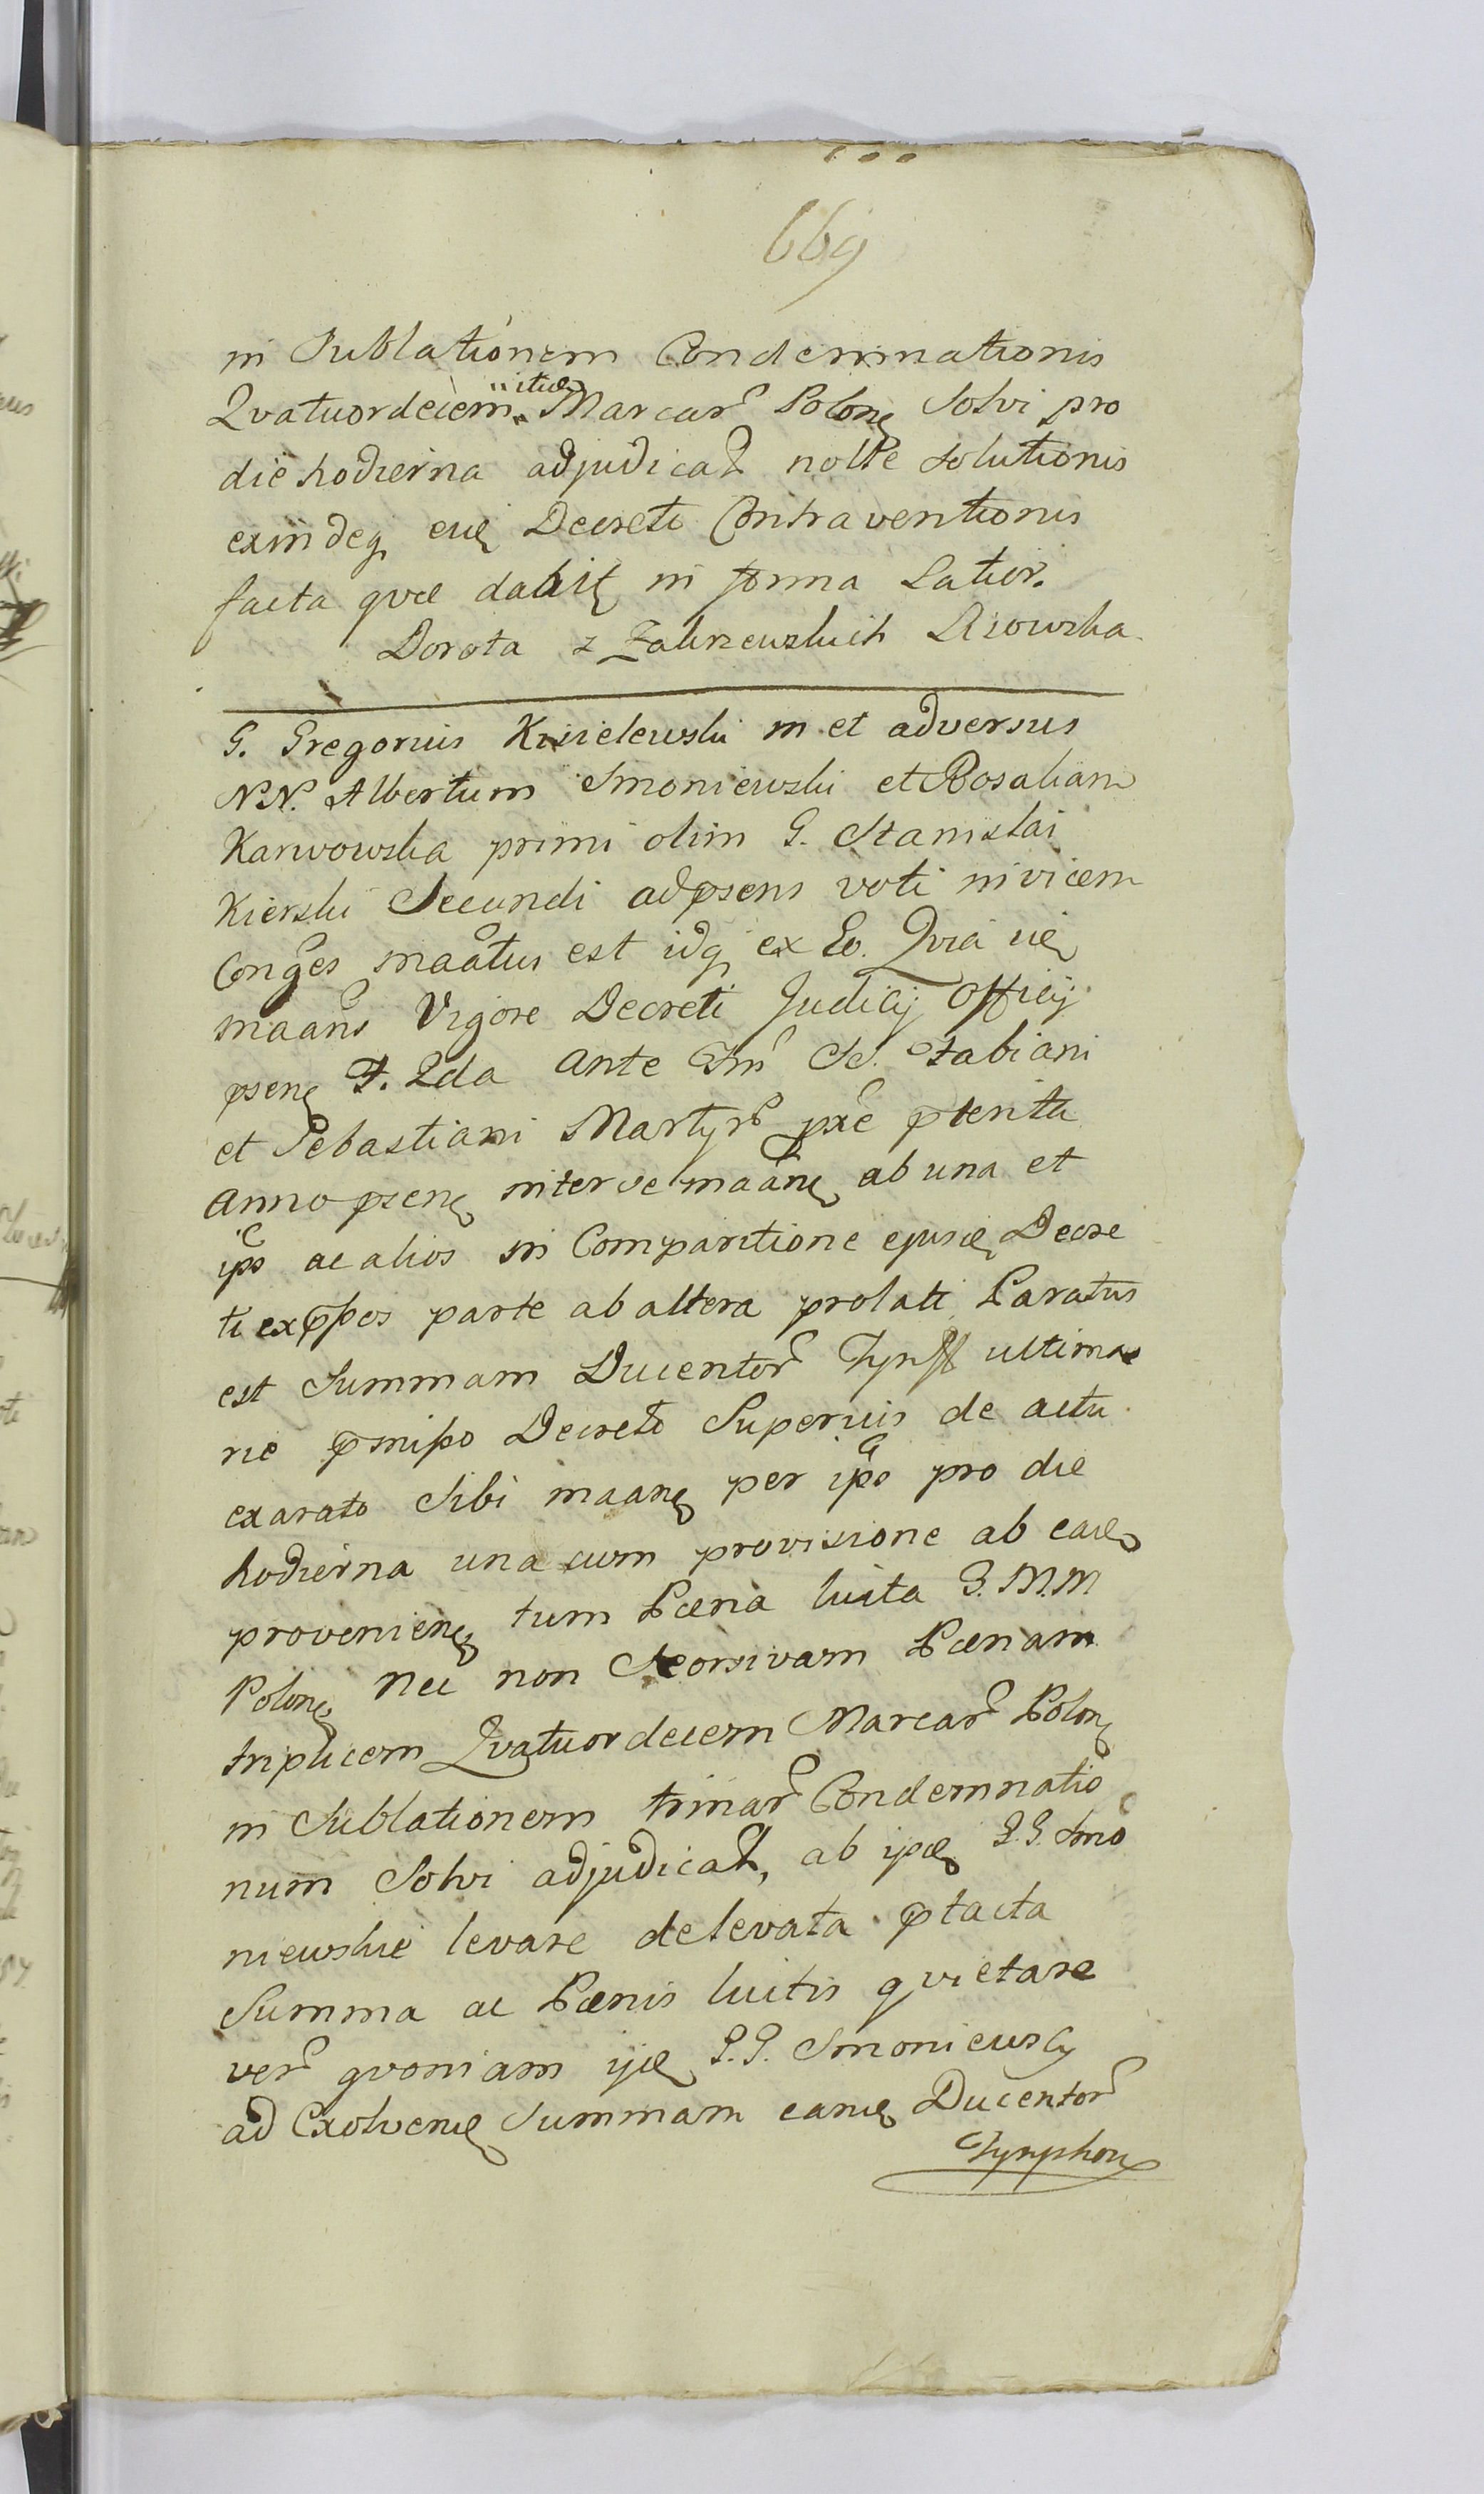 669
in Sublationem Condemnationis
Qvatuordecim itid Marcar Polon Solvi pro
die hodierna adjudicat nolle solutionis
exindeq eid Decreti Contraventionis
facta qvæ dabit in forma Latior.
Dorota z Zakrzewskich Lisowska
G. Gregorius Kisielewski in et adversus
NN. Albertum Smoniewski et Rosaliam
Karwowska primi olim G. Stanislai
Kierski Secundi ad psens voti invicem
Conges maatus est idq ex Eo. Qvia iid
maans Vigore Decreti Judicij Officij
psen F. 2da ante Fm SS. Fabiani
et Sebastiani Martyr pxe pterita
Anno psen inter se maan ab una et
ipo ac alios in Comparitione ejusd Decre
ti expsos parte ab altera prolati Paratus
est Summam Ducentor Tynff ultima
rie pmisso Decreto Superius de actu
exarato Sibi maan per ipo pro die
hodierna una cum provisione ab ead
provenien tum Pæna luita 3. M.M
Polon Nec non Seorsivam Pænam
triplicem Qvatuordecem Marcar Polon
in Sublationem trinar Condemnatio
num Solvi adjudicat, ab ipd G.G. Smo
niewskie levare delevata ptacta
Summa ac Pænis luitis qvietare
ver qvoniam ijd G.G. Smoniewscy
ad Exolvend Summam eand Ducentor
Tynphon